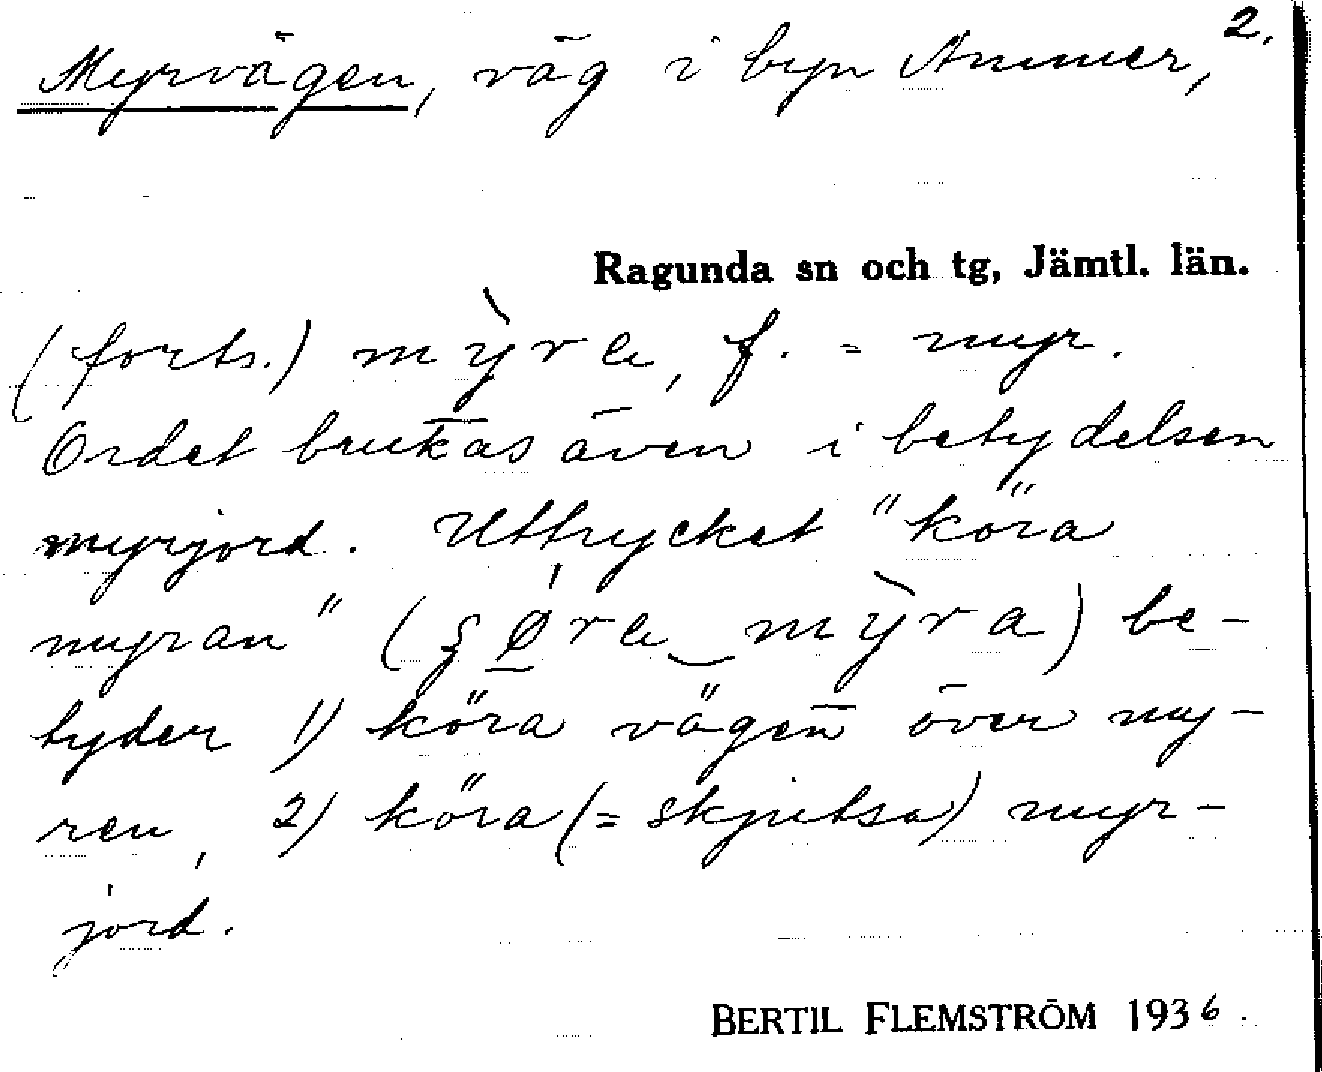 2.
Myrvägen, väg i byn Ammer,
Ragunda sn och tg, Jämtl. län.
(forts.) mỳra, f. = myr.
Ordet brukas även i betydelsen
myrjord. Uttrycket "köra
myran" ( mỳra) be-
tyder 1) köra vägen över my-
ren, 2) köra (= skjutsa) myr-
jord.
BERTIL FLEMSTRÖM 1936.